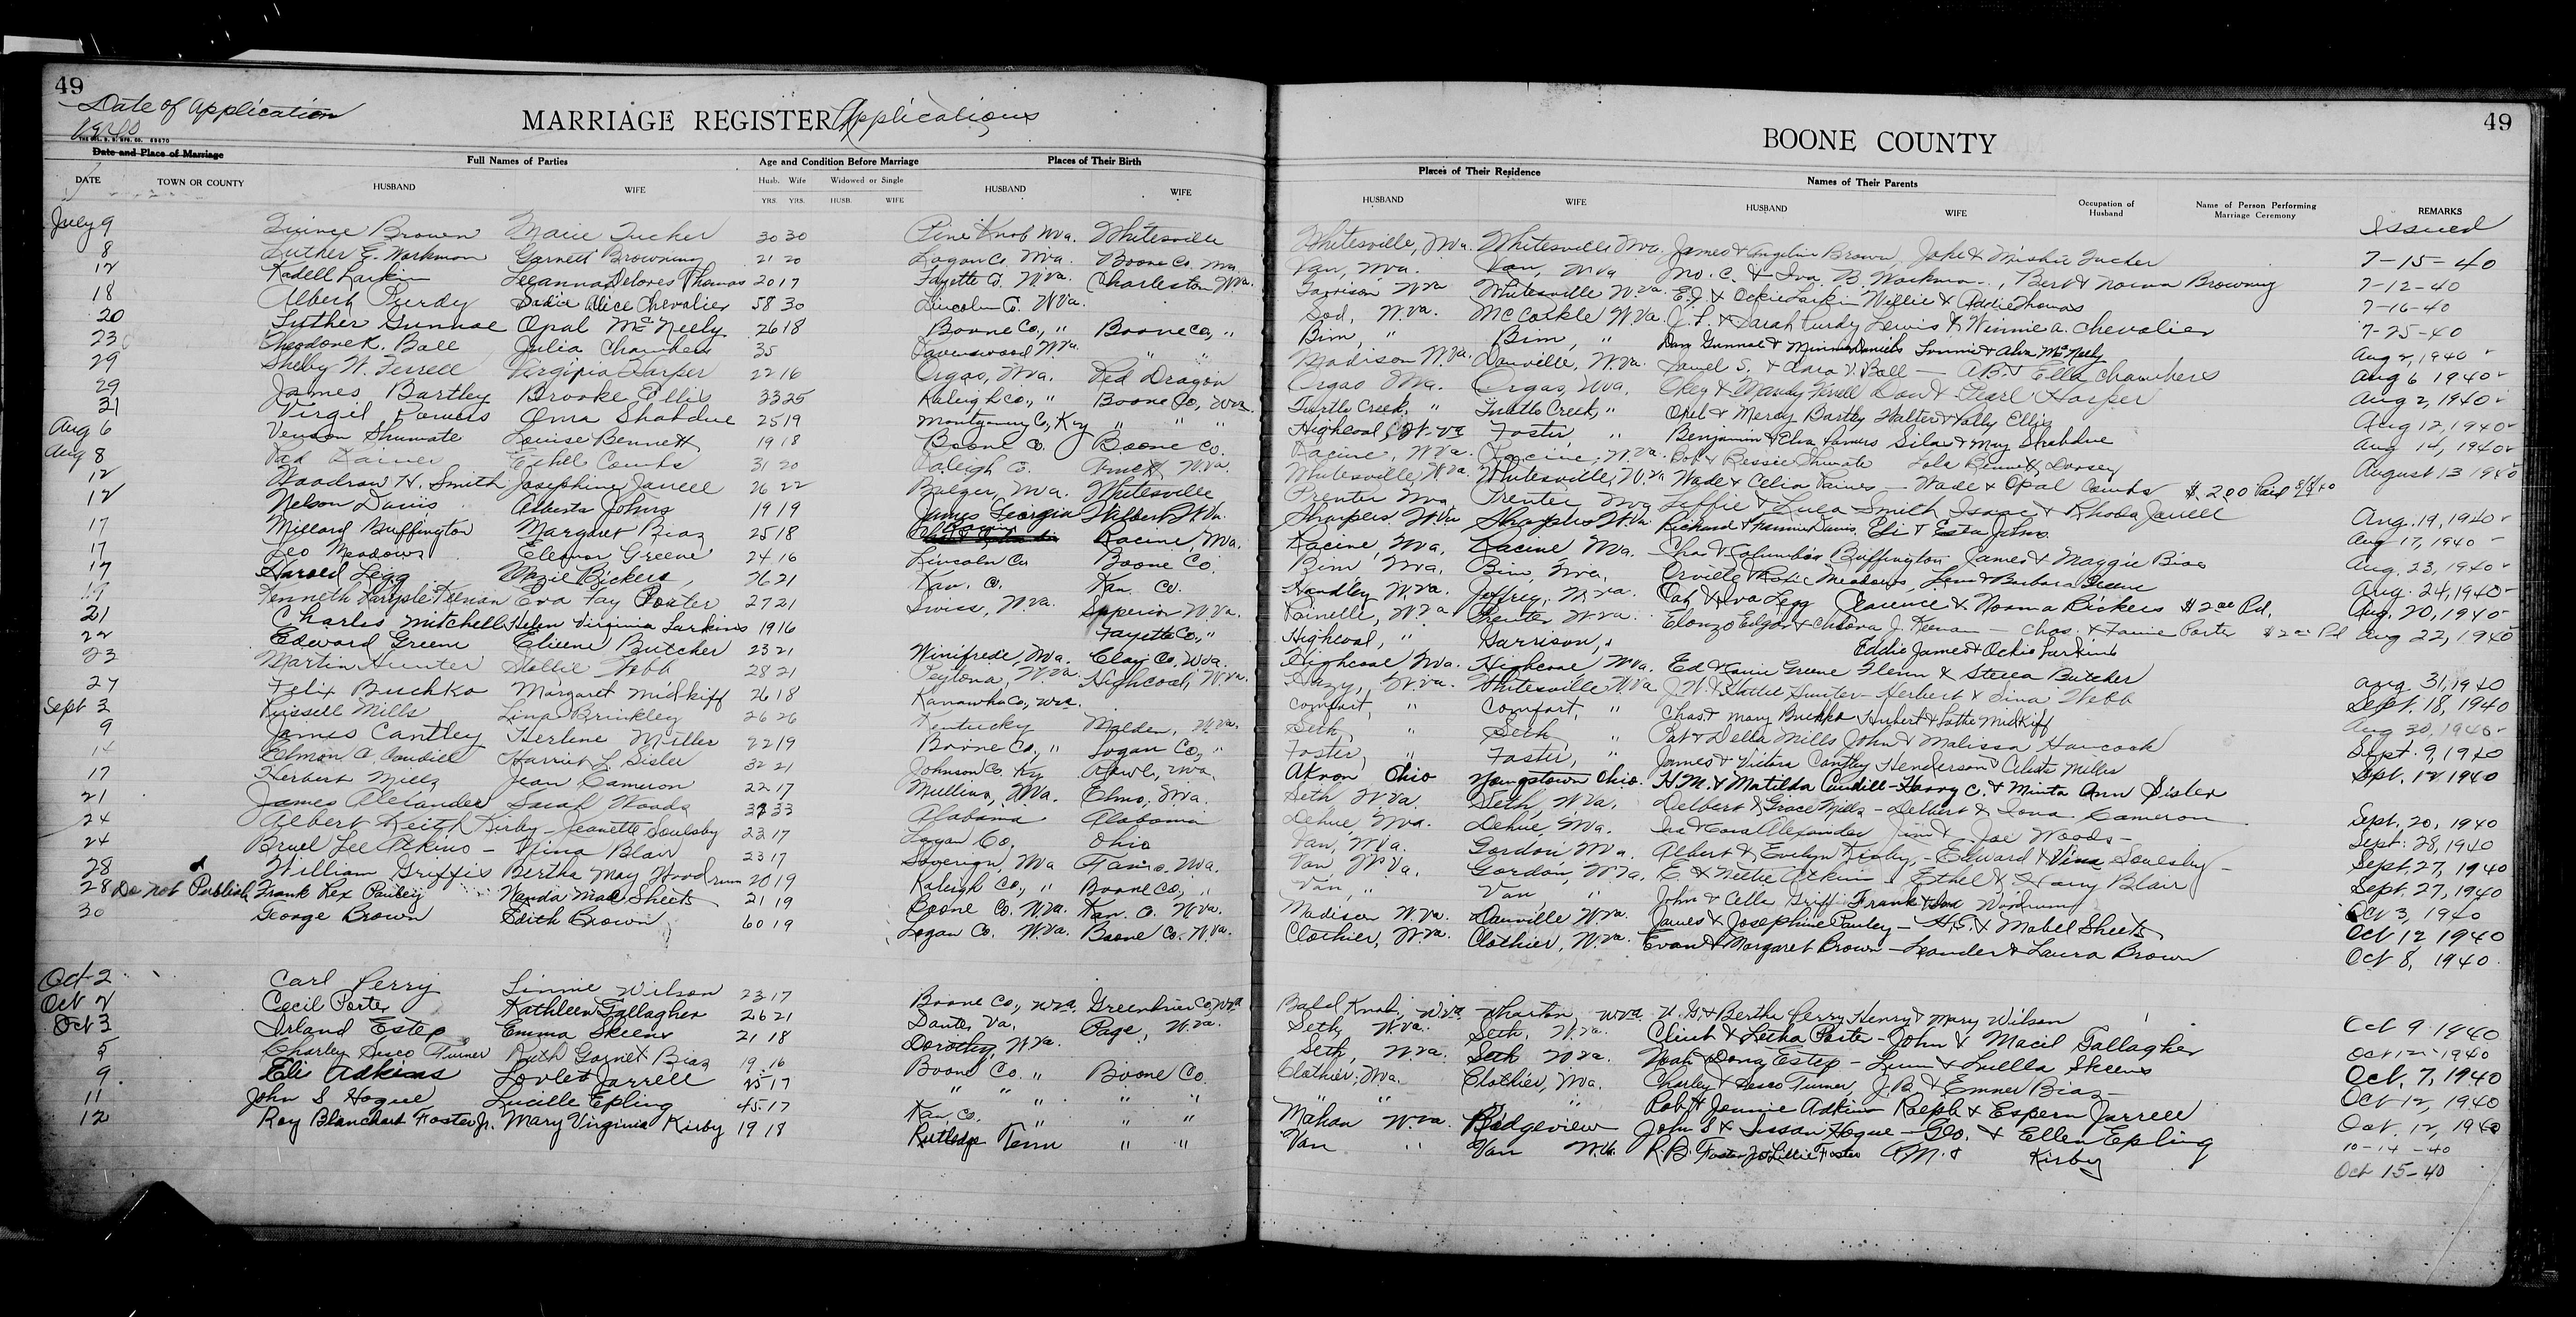 49
Date of Application
1940
MARRIAGE REGISTER Applications
Date and Place of Marriage Full Names of Parties Age and Condition Before Marriage Places of Their Birth
DATE TOWN OR COUNTY HUSBAND WIFE Husb. Wife Widowed or Single HUSBAND WIFE
YRS. YRS. HUSB. WIFE
July 9 Quince Brown Marie Tucker 30 30 Pine Knob Wva. Whitesville
8 Luther E. Workman Garnett Browning 21 20 Logan Co. Wva. Boone Co. Wva.
12 Kadell Larkin Leeanna Delores Thomas 20 17 Fayette Co. W.va. Charleston Wva.
18 Albert Purdy Sadie Alice Chevalier 58 30 Lincoln Co. W Va.
20 Luther Gunnoe Opal McNeely 26 18 Boone Co., " Boone Co., "
23 Theodore K. Ball Julia Chambers 35 Ravenswood W Va. " "
29 Shelby W. Ferrell Virginia Harper 22 16 Orgas, Wva. Red Dragon
29 James Bartley Brooke Ellis 33 25 Raleigh Co., " Boone Co., Wva.
31 Virgil Powers Oma Shabdue 25 19 Montgomery Co., Ky " " "
Aug 6 Venson Shumate Louise Bennett 19 18 Boone Co. Boone Co.
Aug 8 Tad Raines Ethel Combs 31 20 Raleigh Co. Arnett, W.va.
12 Woodrow H. Smith Josephine Jarrell 26 22 Bulger, Wva. Whitesville
12 Nelson Davis Alberta Johns 19 19 James Georgia Filbert W.Va.
17 Millard Buffington Margaret Bias 25 18 Racine Racine, Wva.
17 Leo Meadows Eleanor Greene 24 16 Lincoln Co. Boone Co.
17 Harold Legg Mazie Bickers, 26 21 Kan. Co. Kan. Co.
19 Kenneth Karyple Keenan Eva Fay Porter 27 21 Swiss, W.va. Superior W.va.
21 Charles Mitchell Helen Virginia Larkins 19 16 Fayette Co., "
22 Edward Greene Elieene Butcher 23 21 Winifrede, Wva. Clay Co. Wva.
23 Martin Hunter Stollie Webb 28 21 Peytona, W.va. Highcoal, W.va.
27 Felix Buschko Margaret Midkiff 26 18 Kanawha Co., wva.
Sept 3 Russell Mills Lina Brinkley 26 26 Kentucky Malden, W.va.
9 James Cantley Herlene Miller 22 19 Boone Co., " Logan Co., "
14 Elmon C. Caudill Harriet L. Sisler 32 21 Johnson Co. Ky Wva.
17 Herbert Mills Jean Cameron 22 17 Mullins, Wva. Elmo, Wva.
21 James Alexander Sarah Woods 37 33 Alabama Alabama
24 Albert Keith Kirby - Jeanette Soulsby 23 17 Logan Co. Ohio
24 Bruel Lee Atkins - Nina Blair 23 17 Sovereign, Wva Wva.
28 William Griffis Bertha May Woodrum 20 19 Raleigh Co., " Boone Co., "
28 Do not Publish Frank Rex Pauley Wanda Mae Sheets 21 19 Boone Co. W.va. Kan. Co. W.va.
30 George Brown Edith Brown 60 19 Logan Co. W.va. Boone Co. W.va.
Oct 2 Carl Perry Linnie Wilson 23 17 Boone Co., wva. Greenbrier Co., wva
Oct 2 Cecil Porter Kathleen Gallagher 26 21 Dante, Va. Page, W.va.
Oct 3 Irland Estep Emma Skeens 21 18 Dorothy, W.va.
5 Charley Sesco Turner Ruth Garnet Bias 19 16 Boone Co. " Boone Co.
9 Eli Adkins Lovlet Jarrell 25 17 " " " "
11 John S Hogue Lucille Epling 45 17 Kan. Co. " " "
12 Roy Blanchard Foster Jr. Mary Virginia Kirby 19 18 Rutledge Tenn " "
49
BOONE COUNTY
Places of Their Residence Names of Their Parents
HUSBAND WIFE HUSBAND WIFE Occupation of Husband Name of Person Performing Marriage Ceremony REMARKS
Issued
Whitesville, Wva. Whitesville Wva. James & Angeline Brown Jake & Minshie Tucker 7-15-40
Van, Wva. Van, Wva Jno. C. & Iva B. Workman, Bert & Norma Browning 7-12-40
Garrison W va Whitesville W.va. E.J. & Ockie Larkin Willie & Addie Thomas 7-16-40
Sod, W.va. McCorkle W.Va. J. P. & Sarah Purdy Lewis & Winnie A. Chevalier 7-25-40
Bim, " Bim, " Dan Gunnoe & Minnie Daniels Lonnie & Alva McNeely Aug 2, 1940
Madison W.Va. Danville, W.va. Daniel S. & Clara V. Ball - A.B. & Ella Chambers Aug 6 1940
Orgas Wva. Orgas, Wva. Okey & Mandy Ferrell Dow & Pearl Harper Aug 2, 1940
Turtle Creek, " Turtle Creek, " Opal & Mercy Bartley Walter & Polly Ellis Aug 12, 1940
Highcoal, W-va Foster, " Benjamin & Elva Powers Silas & May Shabdue Aug 14, 1940
Racine, W.va. Racine, W.va. Bob & Bessie Shumate Lola Bennett Dorsey August 13 1940
Whitesville, W.va. Whitesville, W.va Wade & Celia Raines - Wade & Opal Combs $ 2.00 Paid
Prenter Wva Prenter Wva Leffie & Lula Smith Isaac & Rhoda Jarrell Aug. 19, 1940
Sharples W.va Sharples W.va. Richard & Fannie Davis Eli & Esta Johns Aug 17, 1940
Racine, Wva. Racine Wva. Chas & Columbia Buffington James & Maggie Bias Aug. 23, 1940
Bim Wva. Bim, Wva. Orville & Rosie Meadows, Lem & Barbara Greene Aug. 24, 1940
Handley W.va. Jeffrey, W.va. Oat & Iva Legg Clarence & Norma Bickers $2.00 Pd. Aug. 20, 1940
Rainelle, W.va Prenter Wva. Elonzo Edgar & Cordova J. Keenan - Chas. & Fannie Porter $2.00 Pd Aug 22, 1940
Highcoal, " Garrison, " Eddie James & Ockie Larkins
Highcoal Wva. Highcoal Wva. Ed & Annie Greene Glenn & Stella Butcher Aug 31, 1940
Hazy, W.va. Whitesville W.va J.W. & Hattie Hunter - Herbert & Sina Webb Sept. 18, 1940
Comfort, " Comfort, " Chas. & Mary Buschko Hubert & Lathe Midkiff Aug 30, 1940
Seth, " Seth, " Pat & Della Mills John & Malissa Hancock Sept. 9, 1940
Foster, " Foster, " James & Victoria Cantley Henderson & Celeste Miller Sept. 12 1940
Akron Ohio Youngstown Ohio. H.M. & Matilda Caudill - Harry C. & Minta Ann Sisler
Seth W.Va. Seth, W.Va. Delbert & Grace Mills - Delbert & Iona Cameron Sept. 20, 1940
Dehue, Wva. Dehue, Wva. Ira & Cora Alexander Jim & Joe Woods - Sept. 28, 1940
Van, W.va. Gordon Wva. Albert & Evelyn Kirby, - Edward & Vina Soulsby - Sept. 27, 1940
Van, W.va. Gordon, W.Va. C. & Nellie Atkins Ethel & Harry Blair Sept. 27, 1940
Van, " Van, " John & Cella Griffis Frank & Ina Woodrum Oct 3, 1940
Madison W.va. Danville W.va. James & Josephine Pauley - H.S. & Mabel Sheets Oct 12 1940
Clothier, W.va. Clothier, W.va. Evan & Margaret Brown - Leander & Laura Brown Oct 8, 1940
Bald Knob, W.va Wharton, wva. U.G. & Bertha Perry Henry & Mary Wilson Oct 9 1940
Seth, W.va. Seth, W.va. Clint & Letha Porter - John & Macil Gallagher Oct 12 1940
Seth, W.va. Seth W.va. Noah & Dora Estep - Lunn & Luella Skeens Oct. 7, 1940
Clothier, Wva. Clothier, Wva. Charley & Sesco Turner J.B. & Emmer Bias Oct 12, 1940
" " Rob. & Jennie Adkins Ralph & Espern Jarrell Oct. 12, 1940
Mahan W.va. Ridgeview John S & Susan Hogue - Geo. & Ellen Epling 10-14-40
Van Van W.Va. R.B. Foster Jr & Lillie Foster A.M. & Kirby Oct 15-40